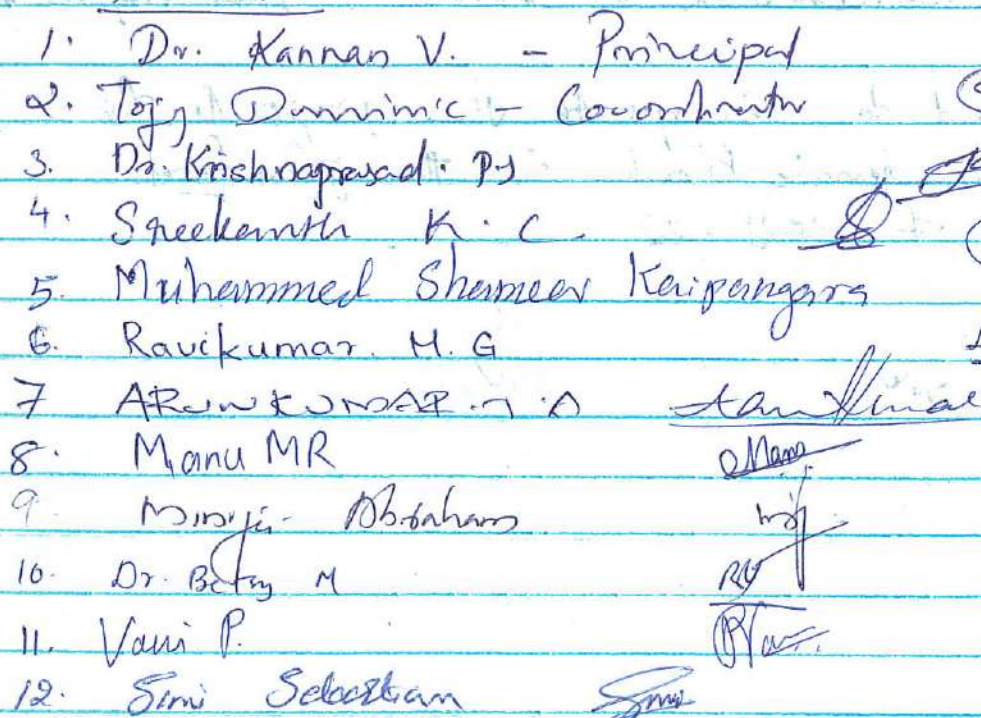 1. Dr. Kannan V. - Principal
2. Tojy Dominic - Coordinator
3. Dr. Krishnaprasad. P J
4. Sreekanth K. C.
5. Muhammed Shameer Kaipangara
6. Ravikumar. M. G
7 ARUN KUMAR
8. Manu MR Manu
9. Abraham
10. Dr. Betsy M
11. Vani P.
12. Simi Sebastian Simi